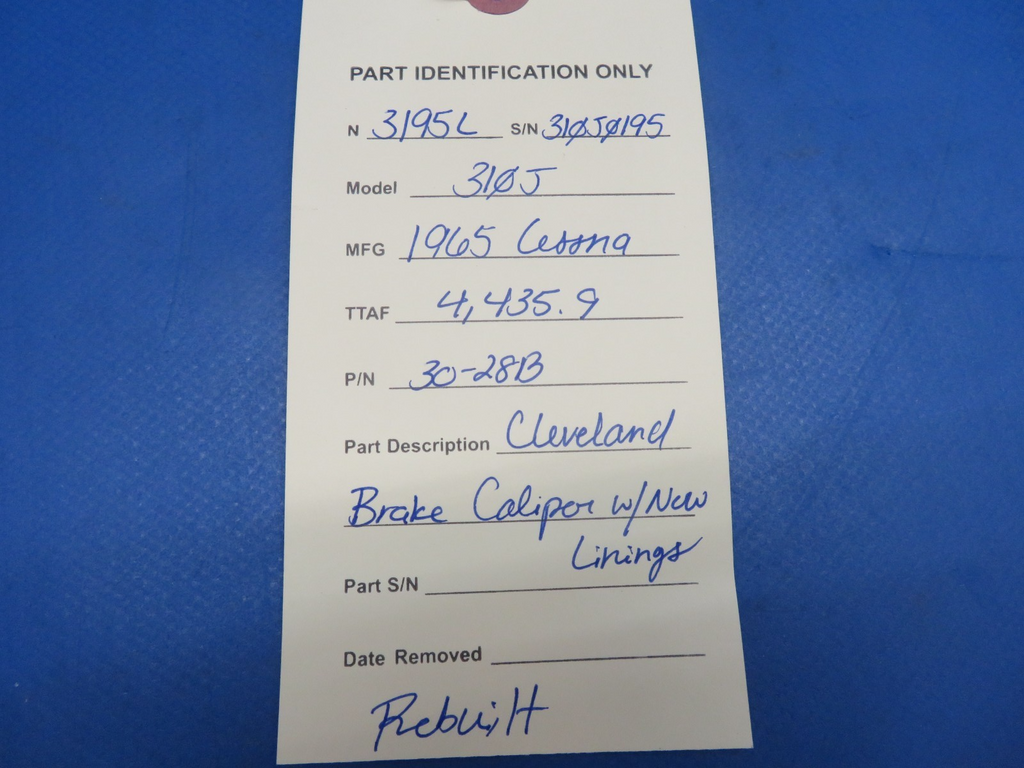 PART IDENTIFICATION ONLY
N 3195L S/N 31ØJØ195
Model 31ØJ
MFG 1965 Cessna
TTAF 4,435.9
P/N 30-28B
Part Description Cleveland
Brake Caliper w/New
Linings
Part S/N
Date Removed
Rebuilt